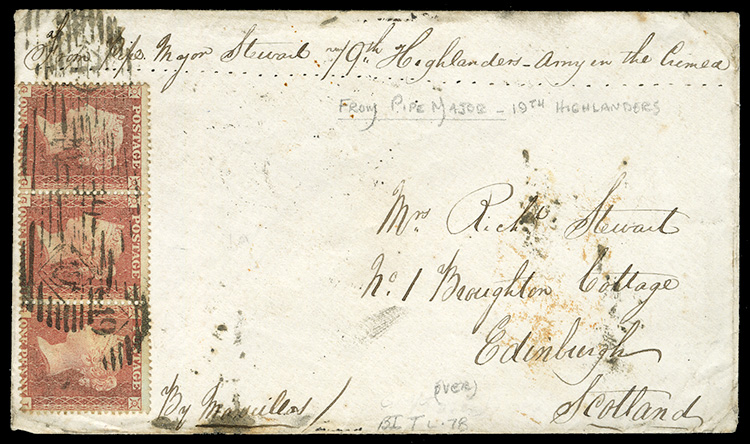 From Pipe Major Stewart 79th Highlanders - Army in the Crimea
FROM PIPE MAJOR - 19TH HIGHLANDERS
Mrs Richd. Stewart
No. 1 Broughton Cottage
Edinburgh
Scotland
By Marseilles
(OVER)
POSTAGE
ONE PENNY
POSTAGE
ONE PENNY
POSTAGE
ONE PENNY